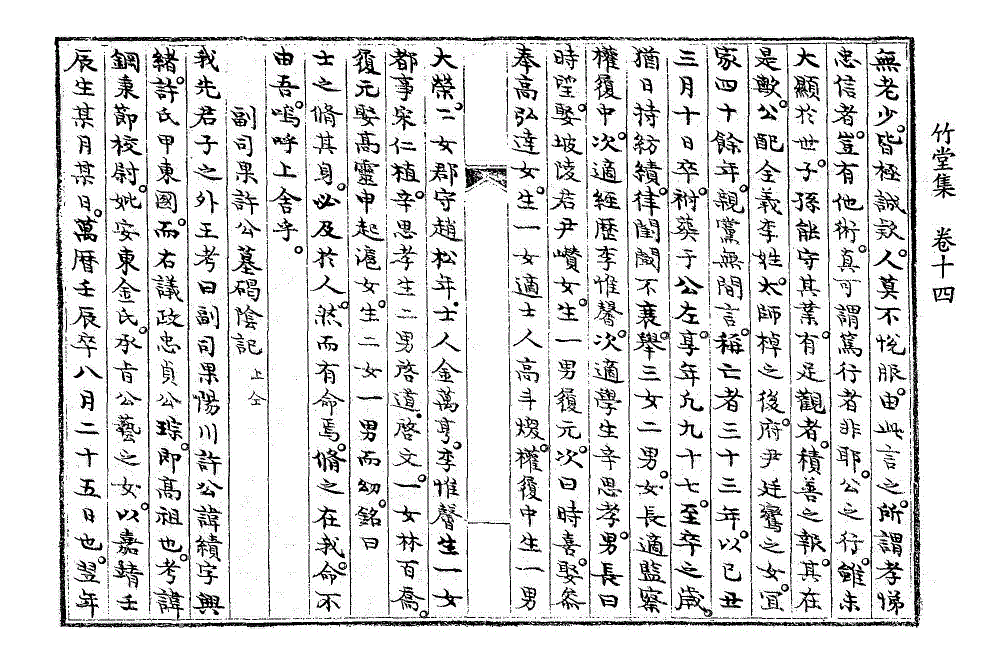 竹堂集 卷十四
無老少。皆極誠款。人莫不悅服。由此言之。所謂孝悌
忠信者。豈有他術。眞可謂篤行者非耶。公之行。雖未
大顯於世。子孫能守其業。有足觀者。積善之報。其在
是歟。公配全義李姓。太師棹之後。府尹廷鸞之女。宜
家四十餘年。親黨無間言。稱亡者三十三年。以己丑
三月十日卒。祔葬于公左。享年凡九十七。至卒之歲。
猶日持紡績。律閨閫不衰。擧三女二男。女長適監察
權復中。次適經歷李惟馨。次適學生辛思孝。男。長曰
時望。娶坡陵君尹巑女。生一男復元。次曰時喜。娶參
奉高弘達女。生一女適士人高斗煐。權復中生一男
大榮。二女郡守趙松年。士人金萬亨。李惟馨生一女
都事宋仁植。辛思孝生二男啓道。啓文。一女林百喬。
復元娶高靈申起滬女。生二女一男而幼。銘曰
士之脩其身。必及於人。然而有命焉。脩之在我。命。不
由吾。嗚呼上舍乎。
副司果許公墓碣陰記 上仝
我先君子之外王考曰副司果陽川許公諱績字興
緖。許氏甲東國。而右議政忠貞公琮。卽高祖也。考諱
鋼秉節校尉。妣安東金氏。承旨公藝之女。以嘉靖壬
辰生某月某日。萬曆壬辰卒八月二十五日也。翌年